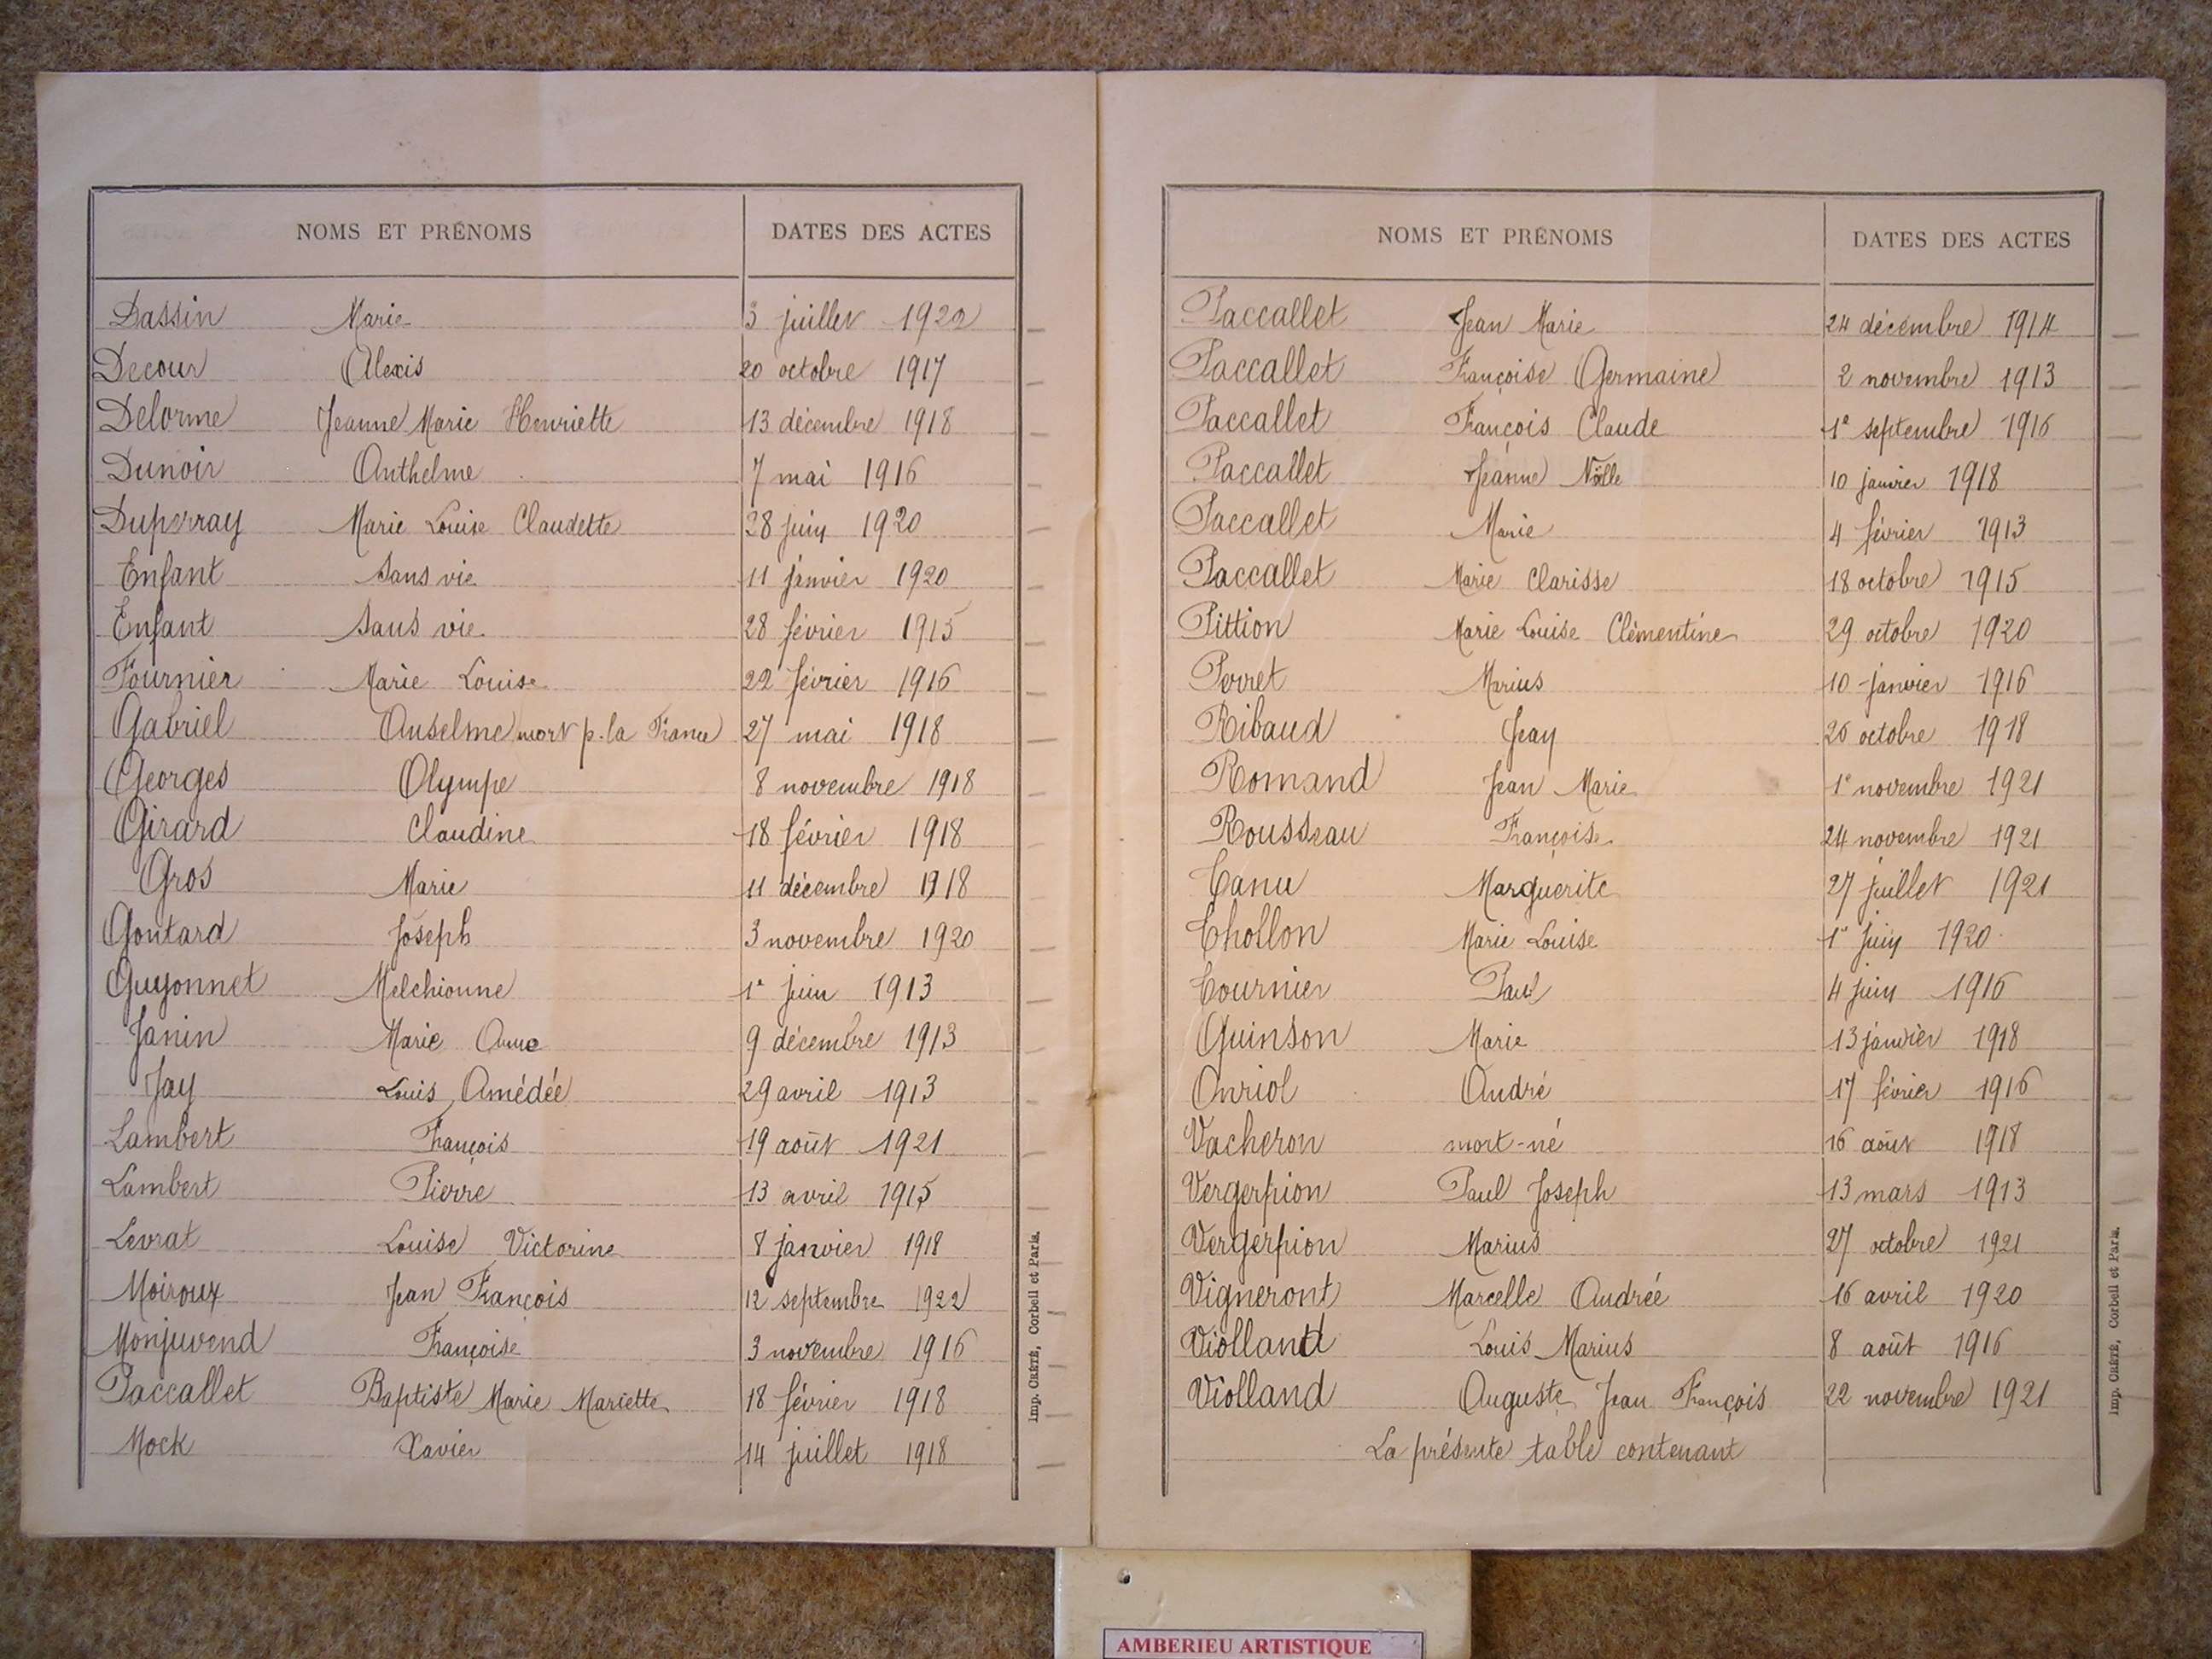 NOMS ET PRÉNOMS DATES DES ACTES
Dassin Marie 3 juillet 1922
Decour Alexis 20 octobre 1917
Delorme Jeanne Marie Henriette 13 décembre 1918
Dunoir Anthelme 7 mai 1916
Duperray Marie Louise Claudette 28 juin 1920
Enfant Sans vie 11 janvier 1920
Enfant Sans vie 28 février 1915
Fournier Marie Louise 22 février 1916
Gabriel Anselme mort p. la France 27 mai 1918
Georges Olympe 8 novembre 1918
Girard Claudine 18 février 1918
Gros Marie 11 décembre 1918
Gontard Joseph 3 novembre 1920
Guyonnet Melchionne 1er juin 1913
Janin Marie Anne 9 décembre 1913
Jay Louis Amédée 29 avril 1913
Lambert François 19 août 1921
Lambert Pierre 13 avril 1915
Levrat Louise Victorine 8 janvier 1918
Moiroux Jean François 12 septembre 1922
Monjuvend Françoise 3 novembre 1916
Paccallet Baptiste Marie Mariette 18 février 1918
Mock Xavier 14 juillet 1918
Imp. CRÉTÉ, Corbeil et Paris.
NOMS ET PRÉNOMS DATES DES ACTES
Paccallet Jean Marie 24 décembre 1914
Paccallet Françoise Germaine 2 novembre 1913
Paccallet François Claude 1e septembre 1916
Paccallet Jeanne Nölle 10 janvier 1918
Paccallet Marie 4 février 1913
Paccallet Marie Clarisse 18 octobre 1915
Pittion Marie Louise Clémentine 29 octobre 1920
Perret Marius 10 janvier 1916
Ribaud Jean octobre 1918
Romand Jean Marie 1e novembre 1921
Rousseau Françoise 24 novembre 1921
Canu Marguerite 27 juillet 1921
Chollon Marie Louise 1er juin 1920
Tournier Paul 4 juin 1916
Quinson Marie 13 janvier 1918
Onriol André 17 février 1916
Vacheron mort-né 16 août 1918
Vergerpion Paul Joseph 13 mars 1913
Vergerpion Marius 27 octobre 1921
Vigneront Marcelle Andrée 16 avril 1920
Violland Louis Marius 8 août 1916
Violland Auguste Jean François 22 novembre 1921
La présente table contenant
Imp. CRÉTÉ, Corbeil et Paris.
AMBERIEU ARTISTIQUE